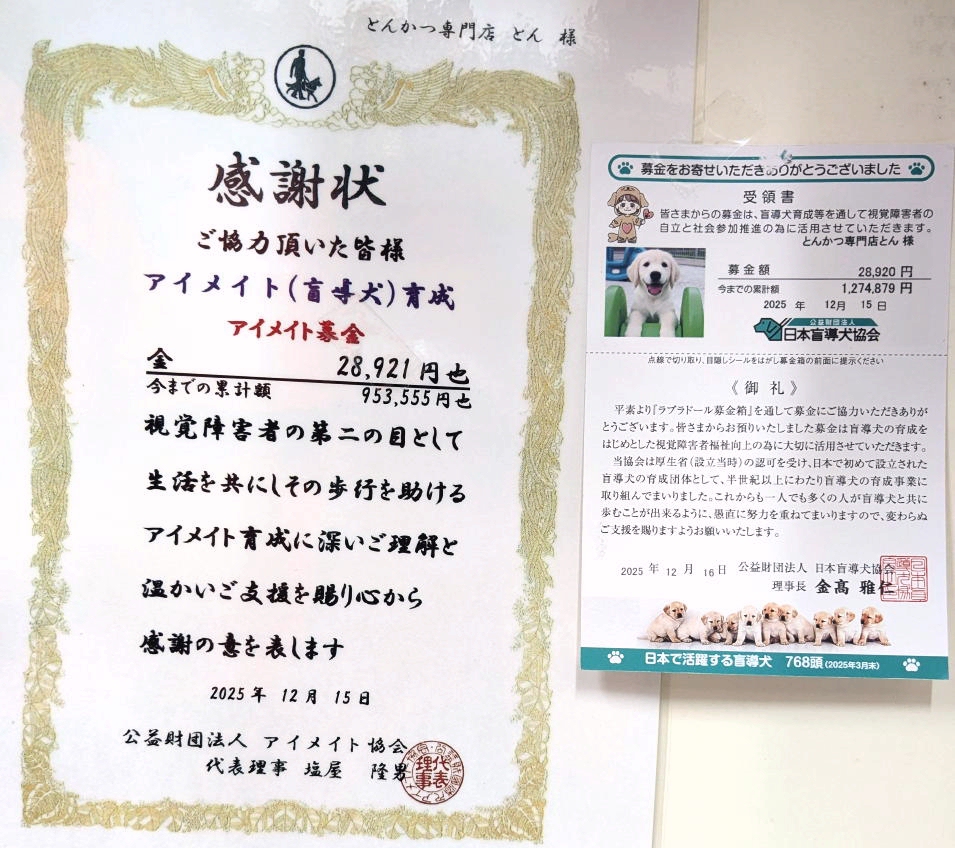 とんかつ専門店 どん 様
感謝状
ご協力頂いた皆様
アイメイト(盲導犬)育成
アイメイト募金
金 28,921円也
今までの累計額 953,555円也
視覚障害者の第二の目として
生活を共にしその歩行を助ける
アイメイト育成に深いご理解と
温かいご支援を賜り心から
感謝の意を表します
2025年 12月 15日
公益財団法人 アイメイト協会
代表理事 塩屋 隆男
代表理事
募金をお寄せいただきありがとうございました
受領書
皆さまからの募金は、盲導犬育成等を通して視覚障害者の
自立と社会参加推進の為に活用させていただきます。
とんかつ専門店とん 様
募金額 28,920円
今までの累計額 1,274,879円
2025 年 12月 15日
公益財団法人
日本盲導犬協会
点線で切り取り、目隠しシールをはがし募金箱の前面に提示ください
《御礼》
平素より『ラブラドール募金箱』を通して募金にご協力いただきありが
とうございます。皆さまからお預りいたしました募金は盲導犬の育成を
はじめとした視覚障害者福祉向上の為に大切に活用させていただきます。
当協会は厚生省(設立当時)の認可を受け、日本で初めて設立された
盲導犬の育成団体として、半世紀以上にわたり盲導犬の育成事業に
取り組んでまいりました。これからも一人でも多くの人が盲導犬と共に
歩むことが出来るように、愚直に努力を重ねてまいりますので、変わらぬ
ご支援を賜りますようお願いいたします。
2025 年 12 月 16日 公益財団法人 日本盲導犬協会
理事長 金高 雅仁
日本で活躍する盲導犬 768頭(2025年3月末)